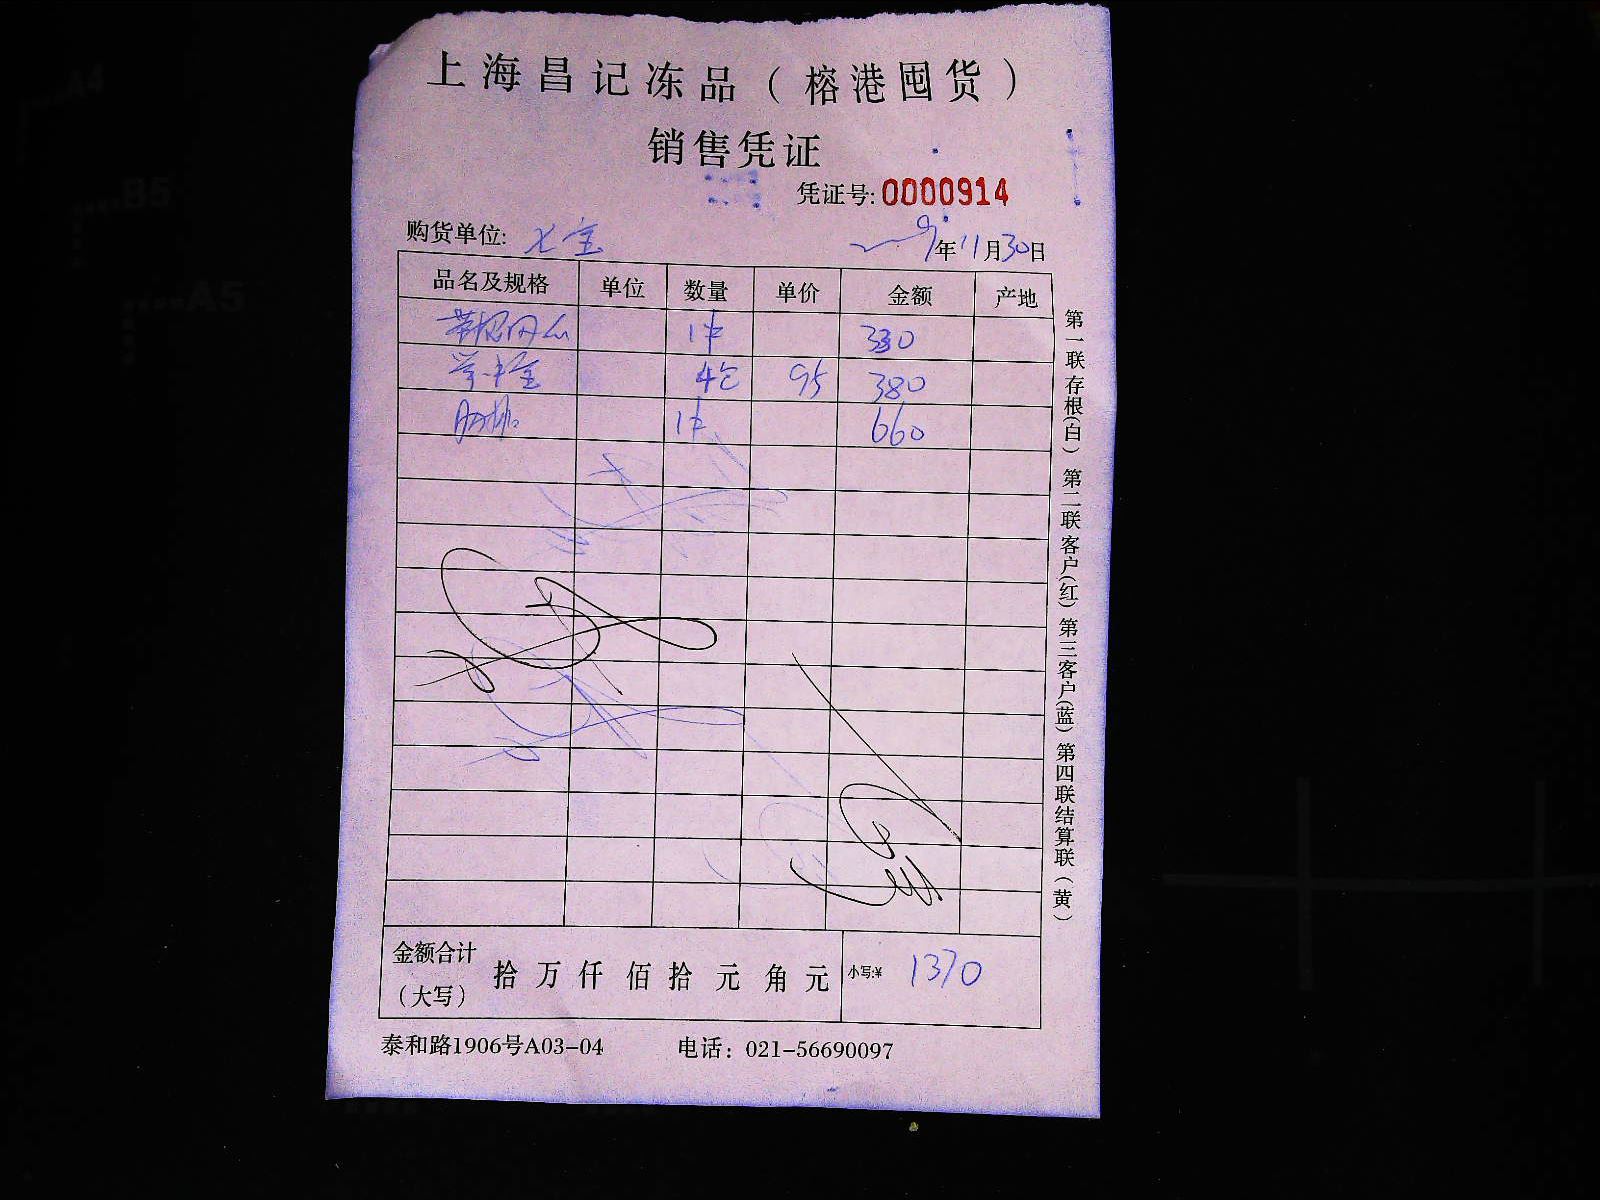 上海昌记冻品（榕港囤货）
销售凭证
凭证号: 0000914
购货单位: 七宝 9年11月30日
品名及规格 单位 数量 单价 金额 产地
1件 330
4包 95 380
1件 660
第一联存根(白) 第二联客户(红) 第三客户(蓝) 第四联结算联(黄)
金额合计（大写） 拾 万 仟 佰 拾 元 角 元 小写:¥ 1370
泰和路1906号A03-04 电话：021-56690097
A4
B5
A5